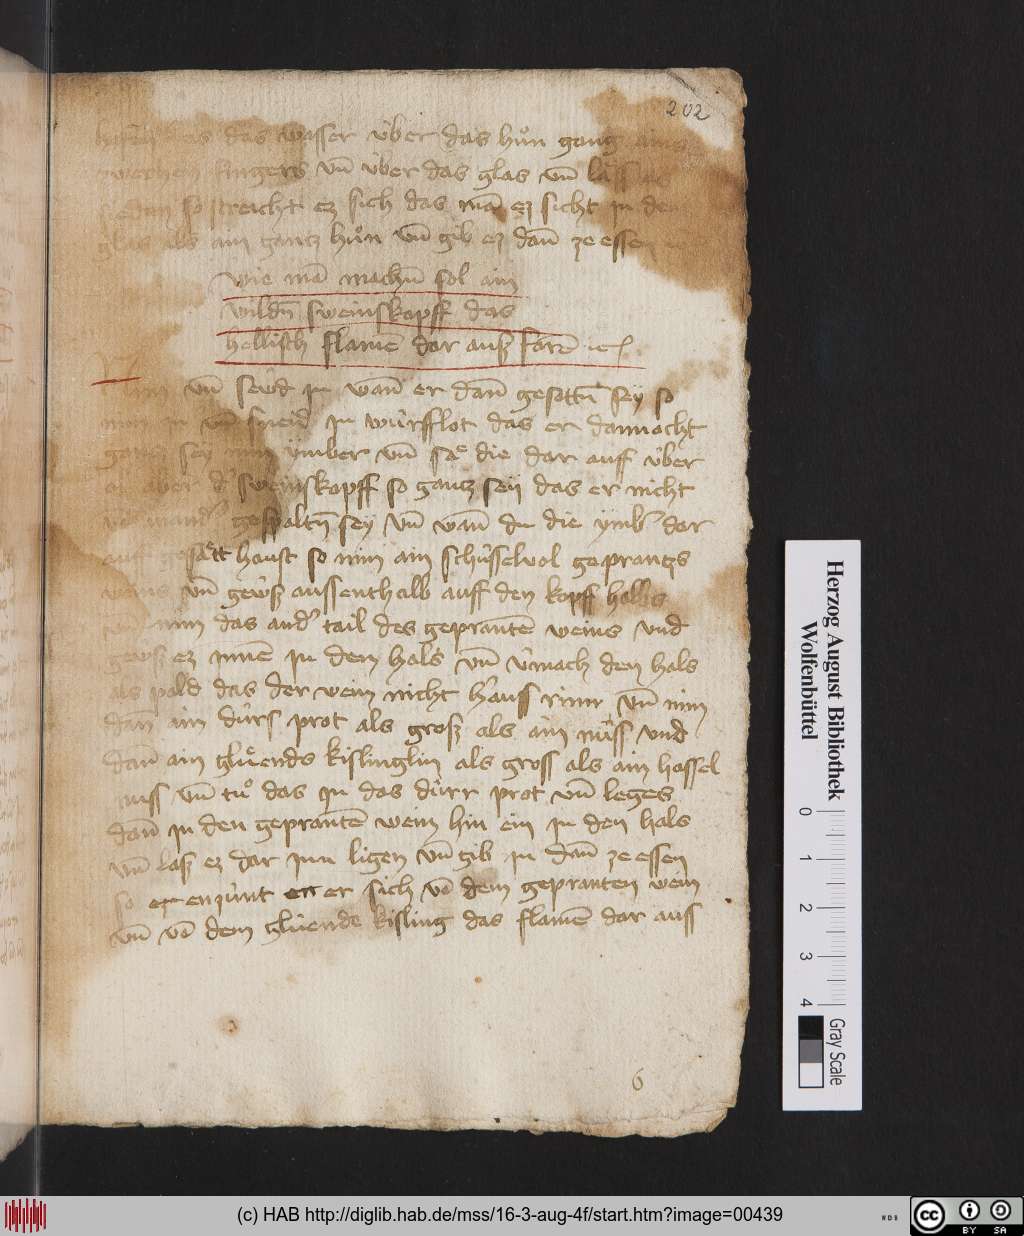 202
das wasser über das hůn gang
zwerhen fingers vn̄ über das glas vn̄ lass
so streicht ez sich das mā ez sicht in dem
glas als ain gantz hůn vn̄ gib ez dan̄ ze essen
wie mā machn̄ sol ain
wildn̄ sweinskopff das
hellisch flamē dar auß farē ꝛc
Nim vn̄ sewd in wan̄ er dan̄ gesottn̄ sey so
nim in vn̄ sneid in würfflot das er dannocht
gantz sey nim ymber vn̄ sä die dar auff über
aber d' sweinskopff so gantz seÿ das er nicht
gespaltn̄ sey vn̄ wan̄ du die ymb' dar
auf gesätt haust so nim ain schüsselvol geprantz
weins vn̄ gewß aussenthalb auff den kopff halbs
nim das and' tail des geprantē weins vnd
ez innē in dem hals vn̄ v'mach den hals
als pald das der wein nicht h'auss rinn vn̄ nim
dan̄ ain dürs prot als groß als ain nuss vnd
dan̄ ain glüends kislinglin als gross als ain hassel
nuss vn̄ tů das in das dürr prot vn̄ leges
dan̄ in den geprantē wein hin ein in den hals
vn̄ laß ez dar inn ligen vn̄ gib in dan̄ ze essen
so enzünt er sich vō dem gepranten wein
vn̄ vō dem glüende kisling das flamē dar auss
6
Herzog August Bibliothek
Wolfenbüttel
0 1 2 3 4
Gray Scale
(c) HAB http://diglib.hab.de/mss/16-3-aug-4f/start.htm?image=00439
WDB
cc BY SA